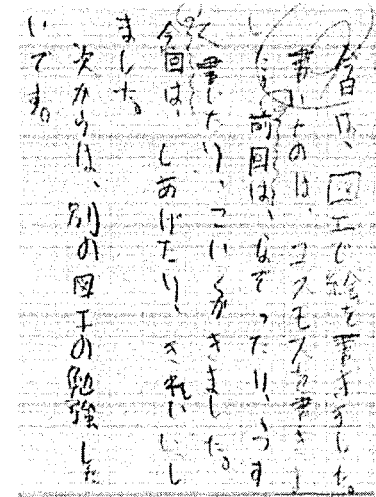 今日は、図工で絵を書きました。
書いたのは、コスモスを書きし
た。前回は、なぞったり、うつす
て書いたり、っいしがきました。
今回は、しあげたり、きれいし
ました。
次からは、別の図工の勉強した
いです。